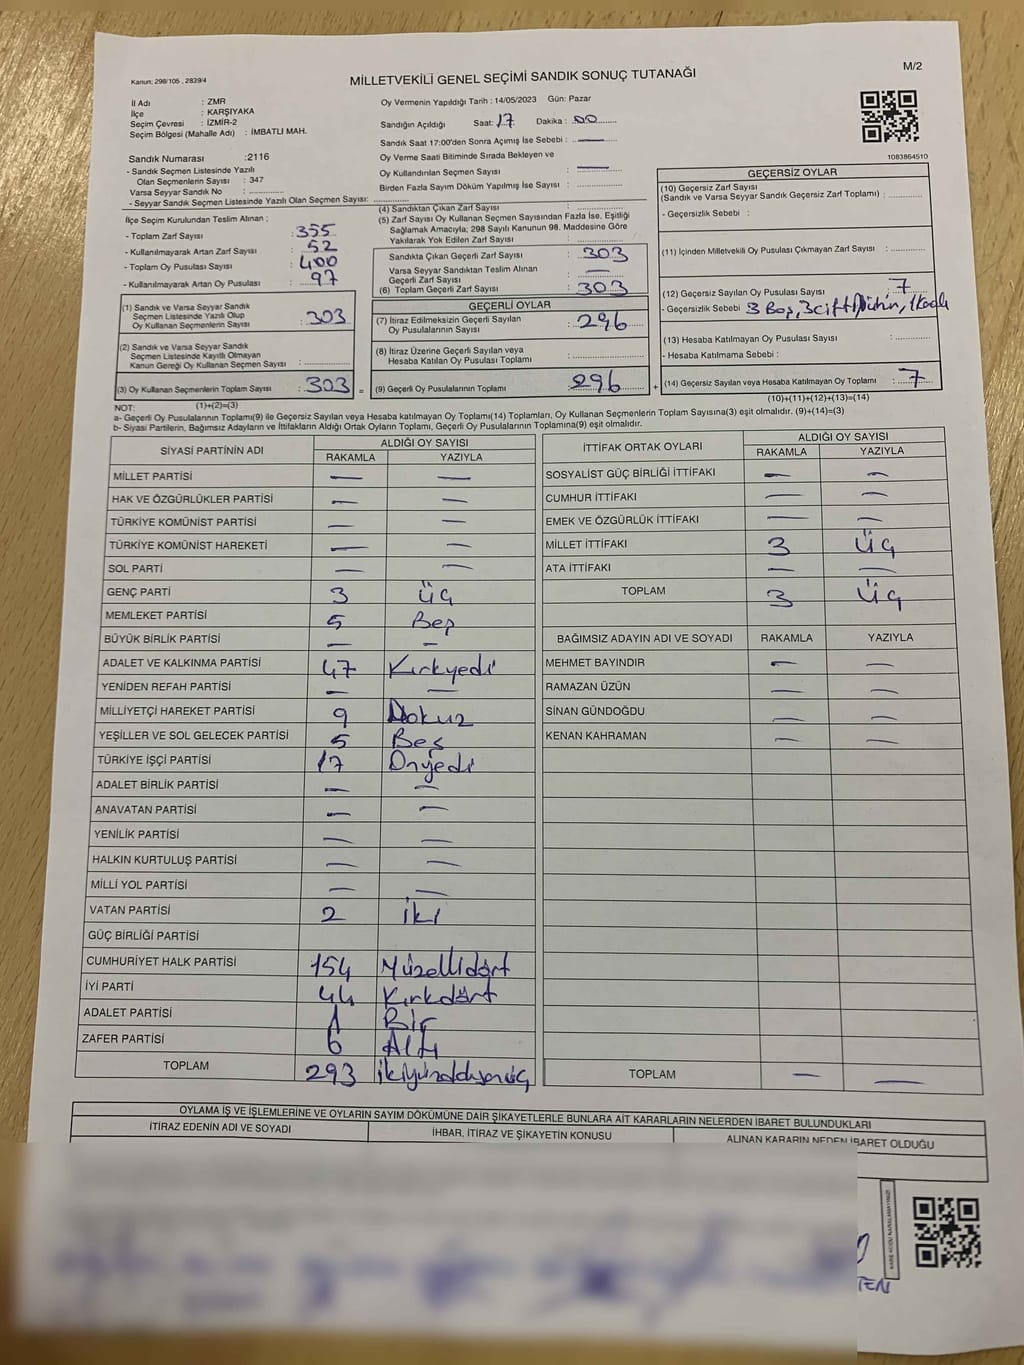 Kanun; 298/105 , 2839/4
MİLLETVEKİLİ GENEL SEÇİMİ SANDIK SONUÇ TUTANAĞI
M/2
İl Adı : ZMR
İlçe : KARŞIYAKA
Seçim Çevresi : İZMİR-2
Seçim Bölgesi (Mahalle Adı) : İMBATLI MAH.
Oy Vermenin Yapıldığı Tarih : 14/05/2023 Gün: Pazar
Sandığın Açıldığı Saat: 17 Dakika : 00
Sandık Saat 17:00'den Sonra Açımış İse Sebebi : —
Oy Verme Saati Bitiminde Sırada Bekleyen ve
Oy Kullandırılan Seçmen Sayısı : —
Birden Fazla Sayım Döküm Yapılmış İse Sayısı :
1083864510
Sandık Numarası :2116
- Sandık Seçmen Listesinde Yazılı
Olan Seçmenlerin Sayısı : 347
Varsa Seyyar Sandık No :
- Seyyar Sandık Seçmen Listesinde Yazılı Olan Seçmen Sayısı:
İlçe Seçim Kurulundan Teslim Alınan ;
- Toplam Zarf Sayısı : 355
- Kullanılmayarak Artan Zarf Sayısı : 52
- Toplam Oy Pusulası Sayısı : 400
- Kullanılmayarak Artan Oy Pusulası : 97
(1) Sandık ve Varsa Seyyar Sandık
Seçmen Listesinde Yazılı Olup
Oy Kullanan Seçmenlerin Sayısı : 303
(2) Sandık ve Varsa Seyyar Sandık
Seçmen Listesinde Kayıtlı Olmayan
Kanun Gereği Oy Kullanan Seçmen Sayısı :
(3) Oy Kullanan Seçmenlerin Toplam Sayısı : 303 =
(4) Sandıktan Çıkan Zarf Sayısı :
(5) Zarf Sayısı Oy Kullanan Seçmen Sayısından Fazla İse, Eşitliği
Sağlamak Amacıyla; 298 Sayılı Kanunun 98. Maddesine Göre
Yakılarak Yok Edilen Zarf Sayısı :
Sandıkta Çıkan Geçerli Zarf Sayısı : 303
Varsa Seyyar Sandıktan Teslim Alınan
Geçerli Zarf Sayısı : —
(6) Toplam Geçerli Zarf Sayısı : 303
GEÇERLİ OYLAR
(7) İtiraz Edilmeksizin Geçerli Sayılan
Oy Pusulalarının Sayısı : 296
(8) İtiraz Üzerine Geçerli Sayılan veya
Hesaba Katılan Oy Pusulası Toplamı :
(9) Geçerli Oy Pusulalarının Toplamı : 296 +
GEÇERSİZ OYLAR
(10) Geçersiz Zarf Sayısı
(Sandık ve Varsa Seyyar Sandık Geçersiz Zarf Toplamı) :
- Geçersizlik Sebebi :
(11) İçinden Milletvekili Oy Pusulası Çıkmayan Zarf Sayısı :
(12) Geçersiz Sayılan Oy Pusulası Sayısı : 7
- Geçersizlik Sebebi : 3 Boş, 3 çift
(13) Hesaba Katılmayan Oy Pusulası Sayısı :
- Hesaba Katılmama Sebebi :
(14) Geçersiz Sayılan veya Hesaba Katılmayan Oy Toplamı : 7
NOT: (1)+(2)=(3)
(10)+(11)+(12)+(13)=(14)
a- Geçerli Oy Pusulalarının Toplamı(9) ile Geçersiz Sayılan veya Hesaba katılmayan Oy Toplamı(14) Toplamları, Oy Kullanan Seçmenlerin Toplam Sayısına(3) eşit olmalıdır. (9)+(14)=(3)
b- Siyasi Partilerin, Bağımsız Adayların ve İttifakların Aldığı Ortak Oyların Toplamı, Geçerli Oy Pusulalarının Toplamına(9) eşit olmalıdır.
SİYASİ PARTİNİN ADI ALDIĞI OY SAYISI
RAKAMLA YAZIYLA
MİLLET PARTİSİ — —
HAK VE ÖZGÜRLÜKLER PARTİSİ — —
TÜRKİYE KOMÜNİST PARTİSİ — —
TÜRKİYE KOMÜNİST HAREKETİ — —
SOL PARTİ — —
GENÇ PARTİ 3 Üç
MEMLEKET PARTİSİ 5 Beş
BÜYÜK BİRLİK PARTİSİ — —
ADALET VE KALKINMA PARTİSİ 47 Kırkyedi
YENİDEN REFAH PARTİSİ — —
MİLLİYETÇİ HAREKET PARTİSİ 9 Dokuz
YEŞİLLER VE SOL GELECEK PARTİSİ 5 Beş
TÜRKİYE İŞÇİ PARTİSİ 17 Onyedi
ADALET BİRLİK PARTİSİ — —
ANAVATAN PARTİSİ — —
YENİLİK PARTİSİ — —
HALKIN KURTULUŞ PARTİSİ — —
MİLLİ YOL PARTİSİ — —
VATAN PARTİSİ 2 İki
GÜÇ BİRLİĞİ PARTİSİ
CUMHURİYET HALK PARTİSİ 154 Yüzellidört
İYİ PARTİ 44 Kırkdört
ADALET PARTİSİ 1 Bir
ZAFER PARTİSİ 6 Altı
TOPLAM 293 ikiyüzdoksanüç
İTTİFAK ORTAK OYLARI ALDIĞI OY SAYISI
RAKAMLA YAZIYLA
SOSYALİST GÜÇ BİRLİĞİ İTTİFAKI — —
CUMHUR İTTİFAKI — —
EMEK VE ÖZGÜRLÜK İTTİFAKI — —
MİLLET İTTİFAKI 3 Üç
ATA İTTİFAKI — —
TOPLAM 3 Üç
BAĞIMSIZ ADAYIN ADI VE SOYADI RAKAMLA YAZIYLA
MEHMET BAYINDIR — —
RAMAZAN ÜZÜN — —
SİNAN GÜNDOĞDU — —
KENAN KAHRAMAN — —
TOPLAM — —
OYLAMA İŞ VE İŞLEMLERİNE VE OYLARIN SAYIM DÖKÜMÜNE DAİR ŞİKAYETLERLE BUNLARA AİT KARARLARIN NELERDEN İBARET BULUNDUKLARI
İTİRAZ EDENİN ADI VE SOYADI İHBAR, İTİRAZ VE ŞİKAYETİN KONUSU ALINAN KARARIN NEDEN İBARET OLDUĞU